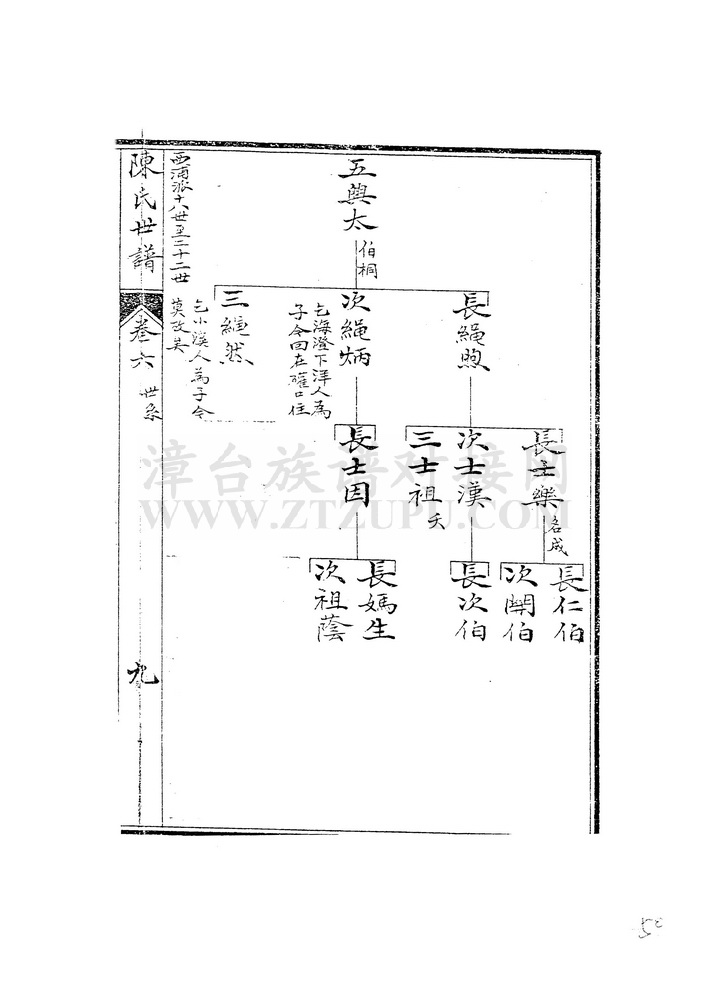 五興太
伯桐
長繩煦
次繩炳
乞海澄下洋人為
子今回在曜口住
三繩然
乞小溪人為子今
莫攷矣
長士樂
名成
次士漢
三士祖
夭
長士因
長仁伯
次開伯
長次伯
長媽生
次祖蔭
西浦派十八世至二十二世
陳氏世譜
卷六
世系
九
漳台族谱对接网
WWW.ZTZUPU.COM
50